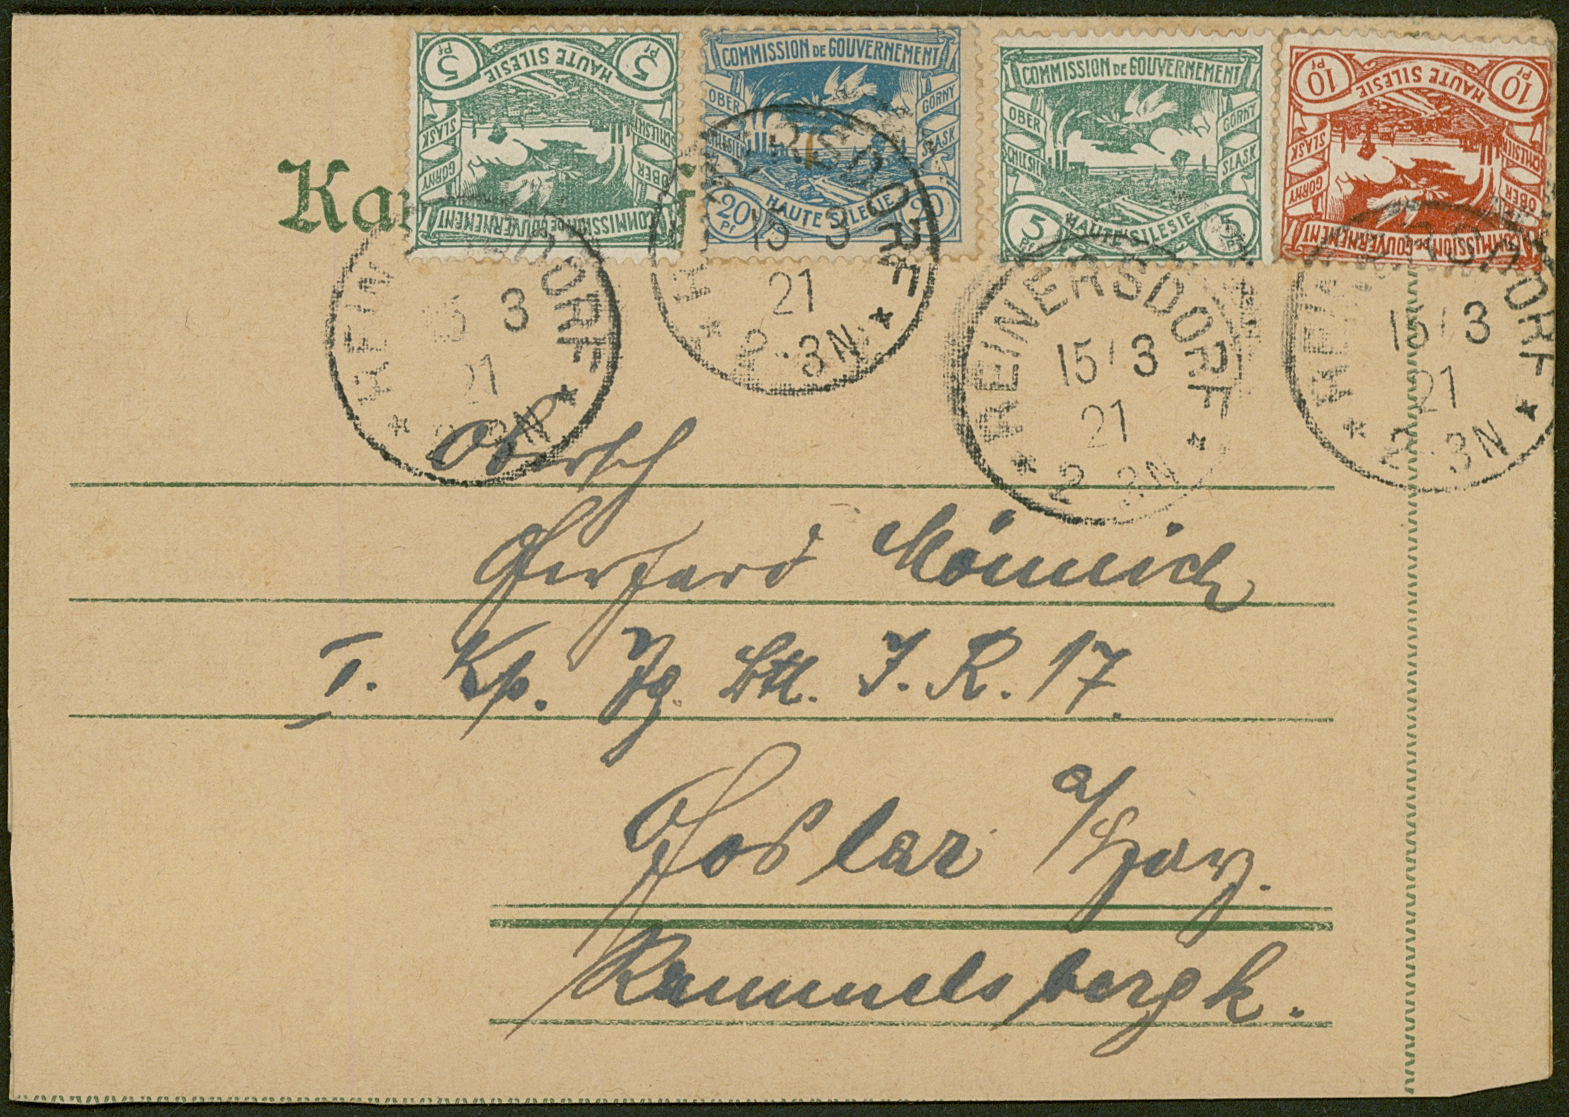 5 Pf HAUTE SILESIE 5 Pf
OBER SCHLESIEN GORNY SLASK
COMMISSION DE GOUVERNEMENT
COMMISSION DE GOUVERNEMENT
OBER SCHLESIEN GORNY SLASK
20 Pf HAUTE SILESIE 20 Pf
COMMISSION DE GOUVERNEMENT
OBER SCHLESIEN GORNY SLASK
5 Pf HAUTE SILESIE 5 Pf
10 Pf HAUTE SILESIE 10 Pf
OBER SCHLESIEN GORNY SLASK
COMMISSION DE GOUVERNEMENT
Ka f
* REINERSDORF *
15 3
21
2-3N
* REINERSDORF *
15 3
21
2-3N
* REINERSDORF *
15 3
21
2-3N
* REINERSDORF *
15 3
21
2-3N
Obersch
Gerhard Mönnich
I. Kp. Jg. Btl. I. R. 17.
Goslar a/Harz.
Rammelsbergk.